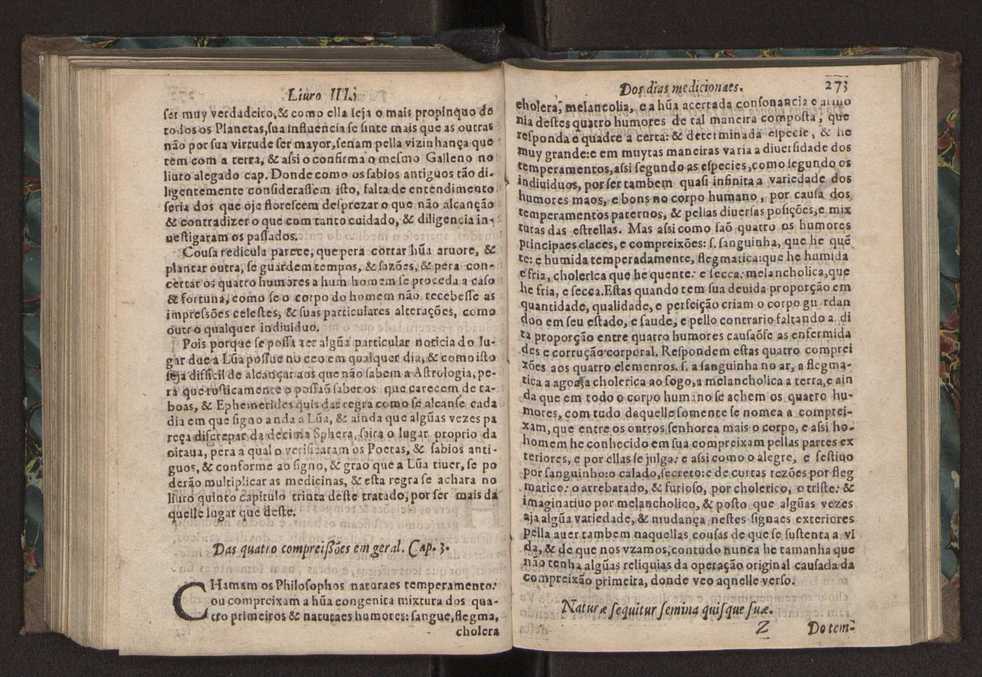 Liuro IIIJ
ser muy verdadeiro, & como ella seja o mais propinquo de
todos os Planetas, sua influencia se sinte mais que as outras
não por sua virtude ser mayor, senam pella vizinhança que
tem com a terra, & assi o confirma o mesmo Galleno no
liuro alegado cap. Donde como os sabios antiguos tão di-
ligentemente considerassem isto, falta de entendimento
seria dos que oje florescem desprezar o que não alcanção
& contradizer o que com tanto cuidado, & diligencia in-
uestigaram os passados.
Cousa redicula parece, que pera cortar hũa aruore, &
plantar outra, se guardem tempos, & sazões, & pera con-
certar os quatro humores a hum homem se proceda a caso
& fortuna, como se o corpo do homem não recebesse as
impressões celestes, & suas particulares alterações, como
outro qualquer indiuiduo.
Pois porque se possa ter algũa particular noticia do lu-
gar que a Lũa possue no ceo em qualquer dia, & como isto
seja difficil de alcançar aos que não sabem a Astrologia, pe-
ra que rusticamente o possaũ saber os que carecem de ta-
boas, & Ephemerides quis dar regra como se alcanse cada
dia em que signo anda a Lũa, & ainda que algũas vezes pa
reça discrepar da decima Sphera, saira o lugar proprio da
oitaua, pera a qual o verificaram os Poetas, & sabios anti-
guos, & conforme ao signo, & grao que a Lũa tiuer, se po
derão multiplicar as medicinas, & esta regra se achara no
liuro quinto capitulo trinta deste tratado, por ser mais da
quelle lugar que deste.
Das quatro compreissões em geral. Cap. 3.
CHamam os Philosophos naturaes temperamento:
ou compreixam a hũa congenita mixtura dos qua-
tro primeiros & naturaes humores: sangue, flegma,
cholera
Dos dias medicionaes. 273
cholera, melancolia, e a hũa acertada consonancia e armo
nia destes quatro humores de tal maneira composta, que
responda e quadre a certa: & determinada especie, & he
muy grande: e em muytas maneiras varia a diuersidade dos
temperamentos, assi segundo as especies, como segundo os
indiuiduos, por ser tambem quasi infinita a variedade dos
humores maos, e bons no corpo humano, por causa dos
temperamentos paternos, & pellas diuersas posições, e mix
turas das estrellas. Mas assi como saõ quatro os humores
principaes claces, e compreixões: s. sanguinha, que he quē
te: e humida temperadamente, flegmatica: que he humida
e fria, cholerica que he quente: e secca: melancholica, que
he fria, e secca. Estas quando tem sua deuida proporção em
quantidade, qualidade, e perfeição criam o corpo guardan
doo em seu estado, e saude, e pello contrario faltando a di
ta proporção entre quatro humores causaõse as enfermida
des e corrução corporal. Respondem estas quatro comprei
xões aos quatro elementos. s. a sanguinha no ar, a flegma-
tica a agoa, a cholerica ao fogo, a melancholica a terra, e ain
da que em todo o corpo humano se achem os quatro hu-
mores, com tudo daquelle somente se nomea a comprei-
xam, que entre os outros senhorea mais o corpo, e assi ho
homem he conhecido em sua compreixam pellas partes ex
teriores, e por ellas se julga: e assi como o alegre, e festiuo
por sanguinho: o calado, secreto: e de curtas rezões por fleg
matico: o arrebatado, & furioso, por cholerico, o triste: &
imaginatiuo por melancholico, & posto que algũas vezes
aja algũa variedade, & mudança nestes signaes exteriores
pella auer tambem naquellas cousas de que se sustenta a vi
da, & de que nos vzamos, contudo nunca he tamanha que
não tenha algũas reliquias da operação original causada da
compreixão primeira, donde veo aquelle verso.
Naturæ sequitur semina quisque suæ.
Z Do tem-